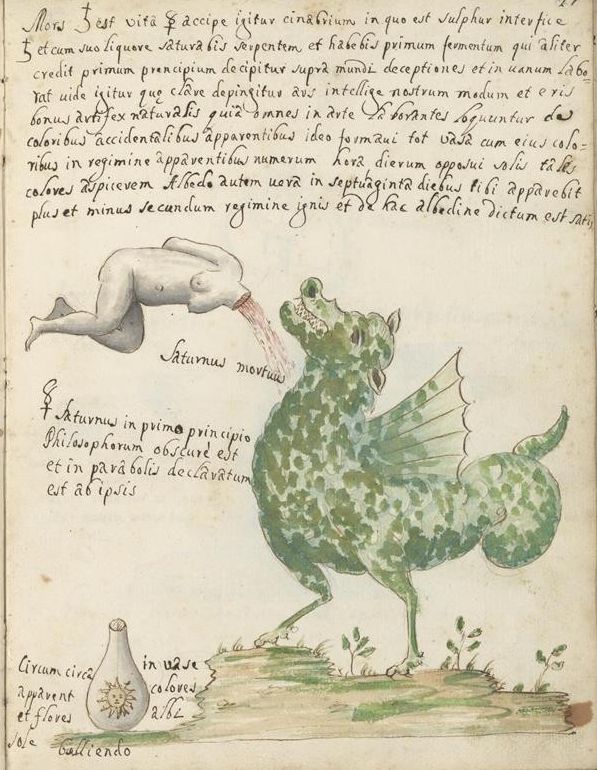 Mors ♄ est vita ☿ accipe igitur cinabrium in quo est sulphur interfice
♄ et cum suo liquore saturabis serpentem et habebis primum fermentum qui aliter
credit primum prencipium decipitur supra mundi deceptiones et in uanum labo-
rat uide igitur quę clare depingitur ars intellige nostrum modum et eris
bonus artifex naturalis quia omnes in arte laborantes loquuntur de
coloribus accidentalibus apparentibus ideo formaui tot vasa cum eius colo=
ribus in regimine apparentibus numerum hora dierum opposui solis tales
colores aspicerem Albedo autem uera in septuaginta diebus tibi apparebit
plus et minus secundum regimine ignis et de hac albedine dictum est satis
Saturnus mortuus
☿ Saturnus in primo principio
Philosophorum obscure est
et in parabolis declaratum
est ab ipsis
Circum circa in uase
apparent colores
et flores albi
sole